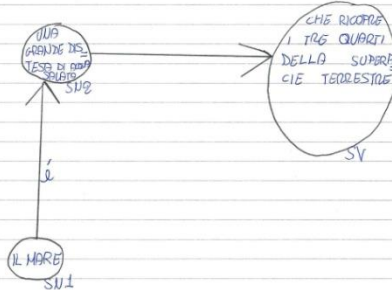 UNA
GRANDE DIS=
TESA DI ACQUA
SALATA
SN2
CHE RICOPRE
I TRE QUARTI
DELLA SUPERFI
CIE TERRESTRE
SV
é
IL MARE
SN1